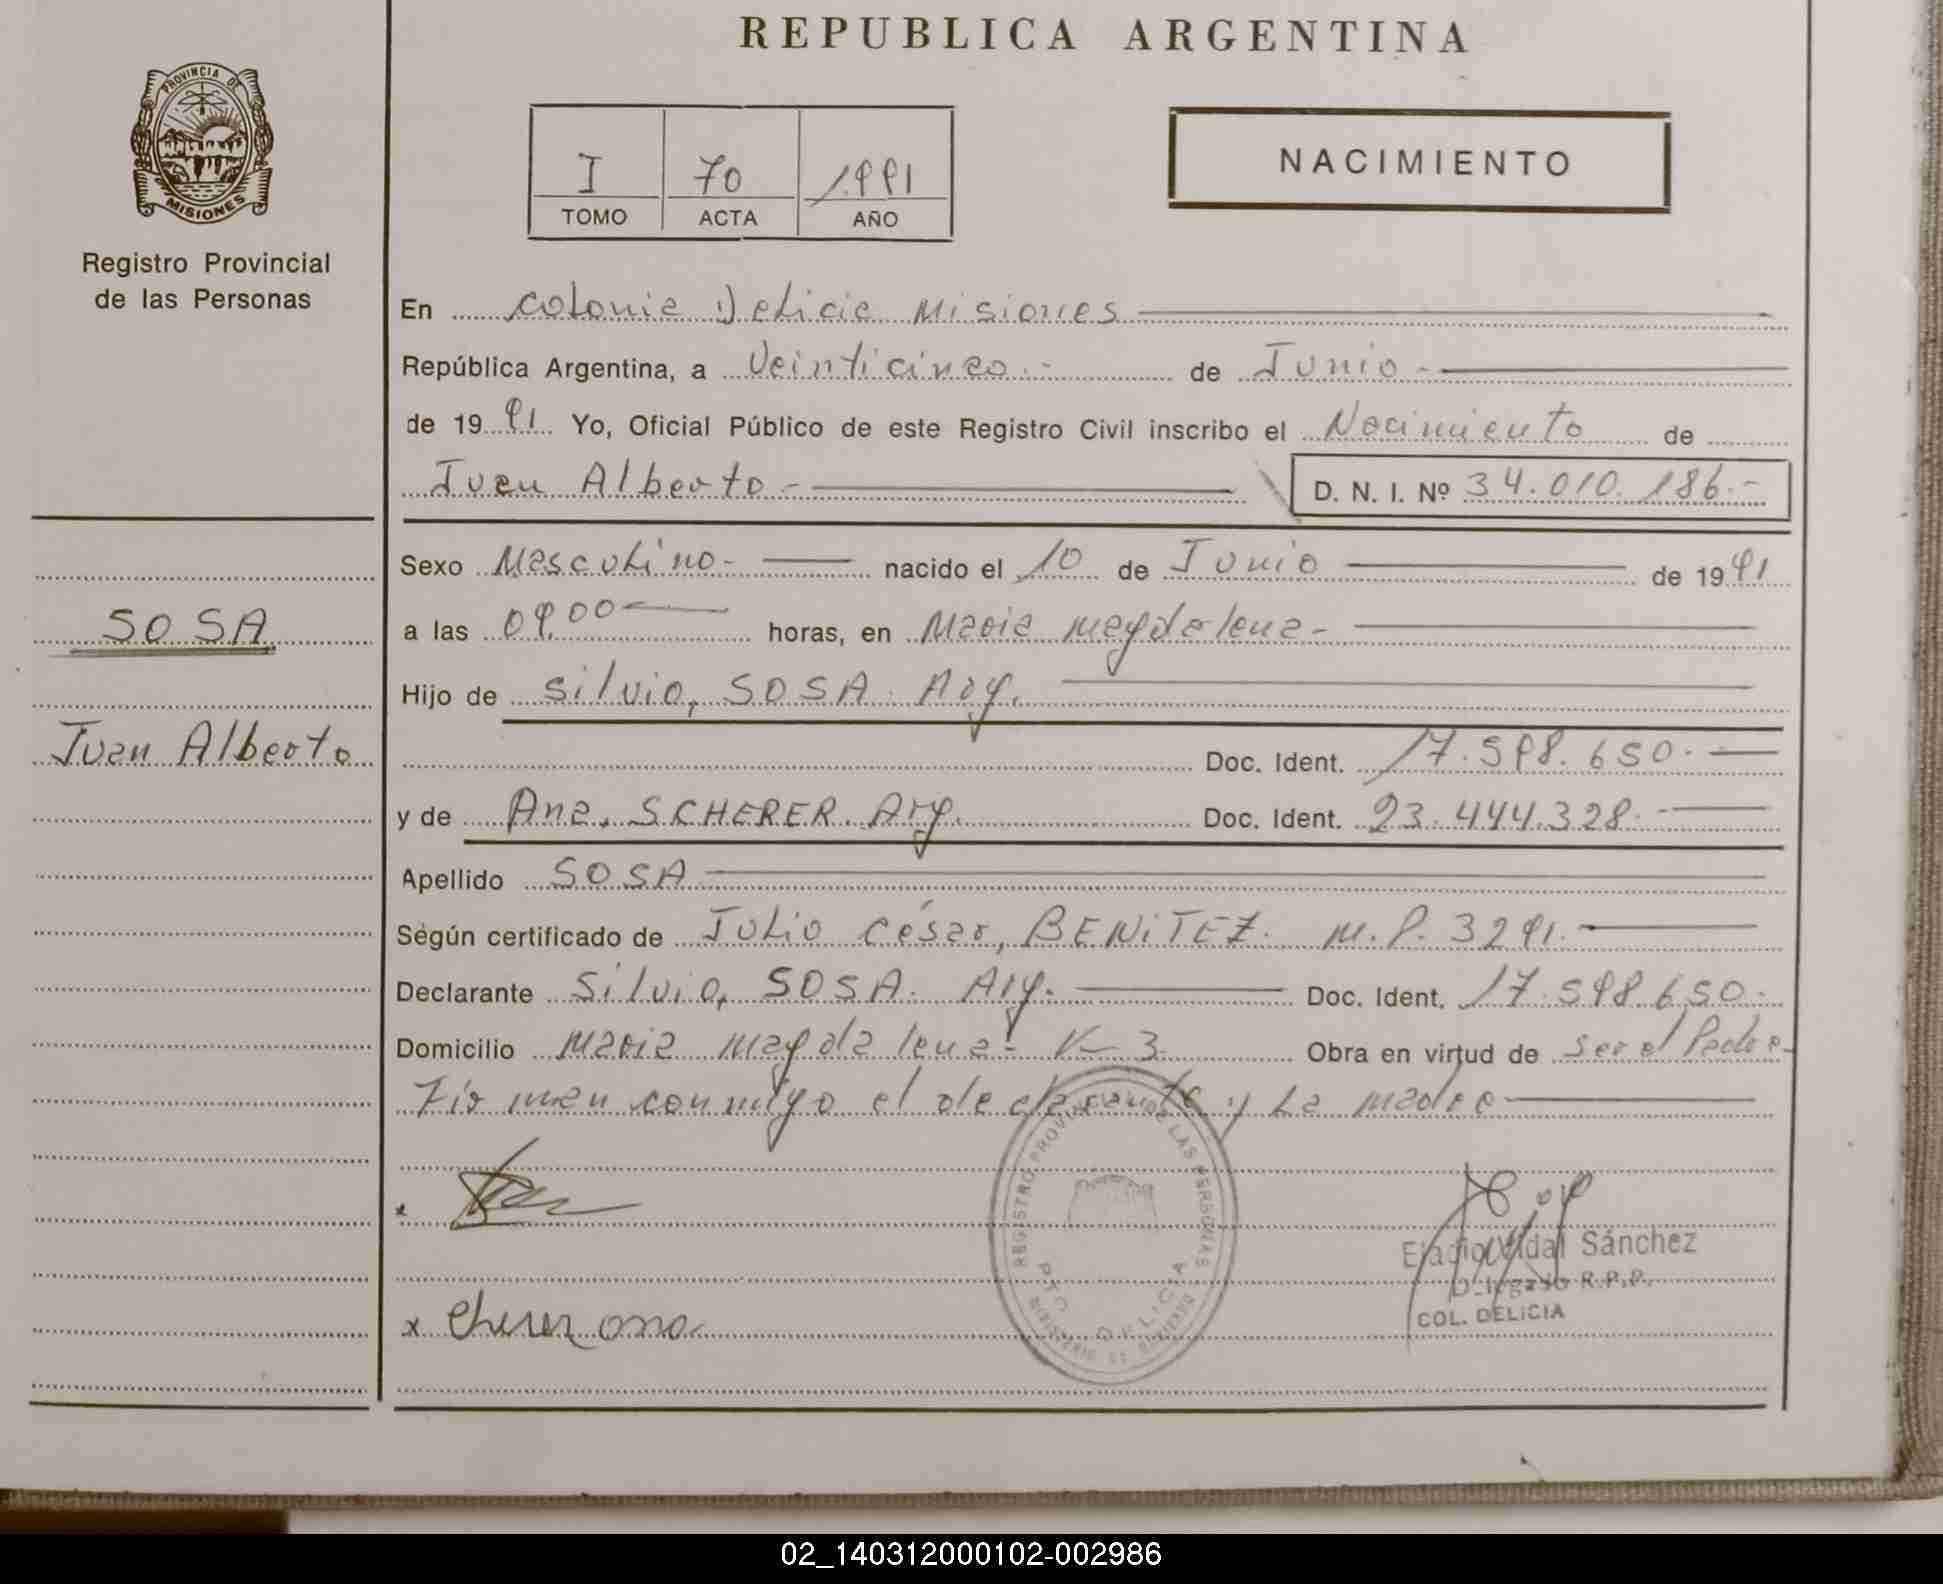 REPUBLICA ARGENTINA
PROVINCIA DE
MISIONES
Registro Provincial
de las Personas
I 70 1991
TOMO ACTA AÑO
NACIMIENTO
En Colonia Delicia Misiones
República Argentina, a Veinticinco.- de Junio -
de 1991 Yo, Oficial Público de este Registro Civil inscribo el Nacimiento de
Juan Alberto - D. N. I. Nº 34.010.186.-
Sexo Masculino- nacido el 10 de Junio de 1991
SOSA
a las 09,00 horas, en Maria Magdalena-
Hijo de Silvio, SOSA. Arg.
Juan Alberto
Doc. Ident. 17.598.650.-
y de Ana, SCHERER. Arg. Doc. Ident. 23.444.328.-
Apellido SOSA
Según certificado de Julio César, BENITEZ. M.P. 3291.-
Declarante Silvio, SOSA. Arg. Doc. Ident. 17.598.650.
Domicilio Maria Magdalena- K-3 Obra en virtud de Ser el Padre-
Firman conmigo el declarante y La madre
x
x Cherer ana
REGISTRO PROVINCIAL DE LAS PERSONAS
PTO. DELICIA
MINISTERIO DE GOBIERNO
Eladio Vidal Sánchez
Delegado R.P.P.
COL. DELICIA
02_140312000102-002986